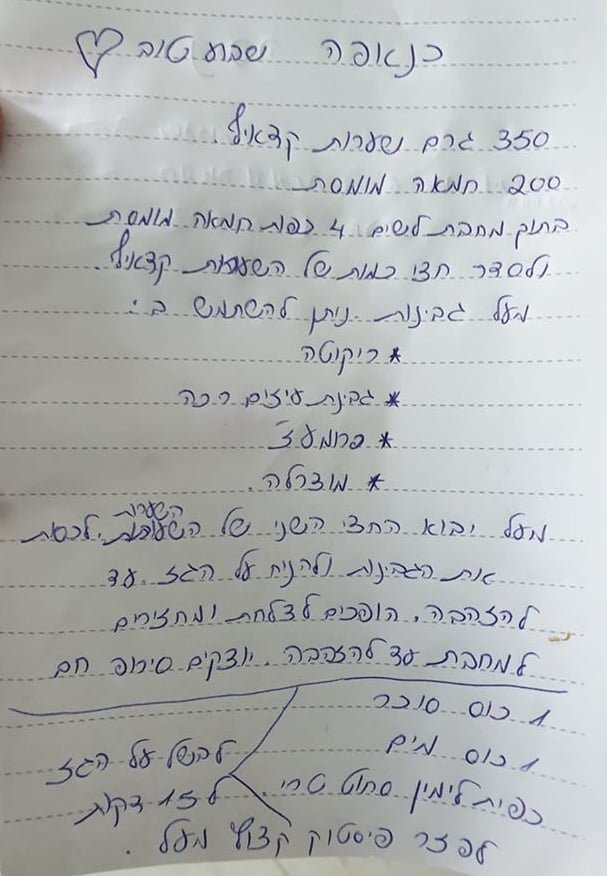 כנאפה שבוע טוב ♡
350 גרם שערות קדאיף.
200 חמאה מומסת
בתוך מחבת לשים 4 כפות חמאה מומסת
ולסדר חצי כמות של השערות קדאיף.
מעל גבינות. ניתן להשתמש ב:
* ריקוטה
* גבינת עיזים רכה
* פרומעז
* מוצרלה.
מעל יבוא החצי השני של השערות. לכסות
את הגבינות ולהניח על הגז. עד
להזהבה. הופכים לצלחת ומחזירים
למחבת עד להזהבה. יוצקים סירופ חם
1 כוס סוכר
1 כוס מים
כפית לימון סחוט טרי.
לבשל על הגז
ל 15 דקות
לפזר פיסטוק קצוץ מעל.